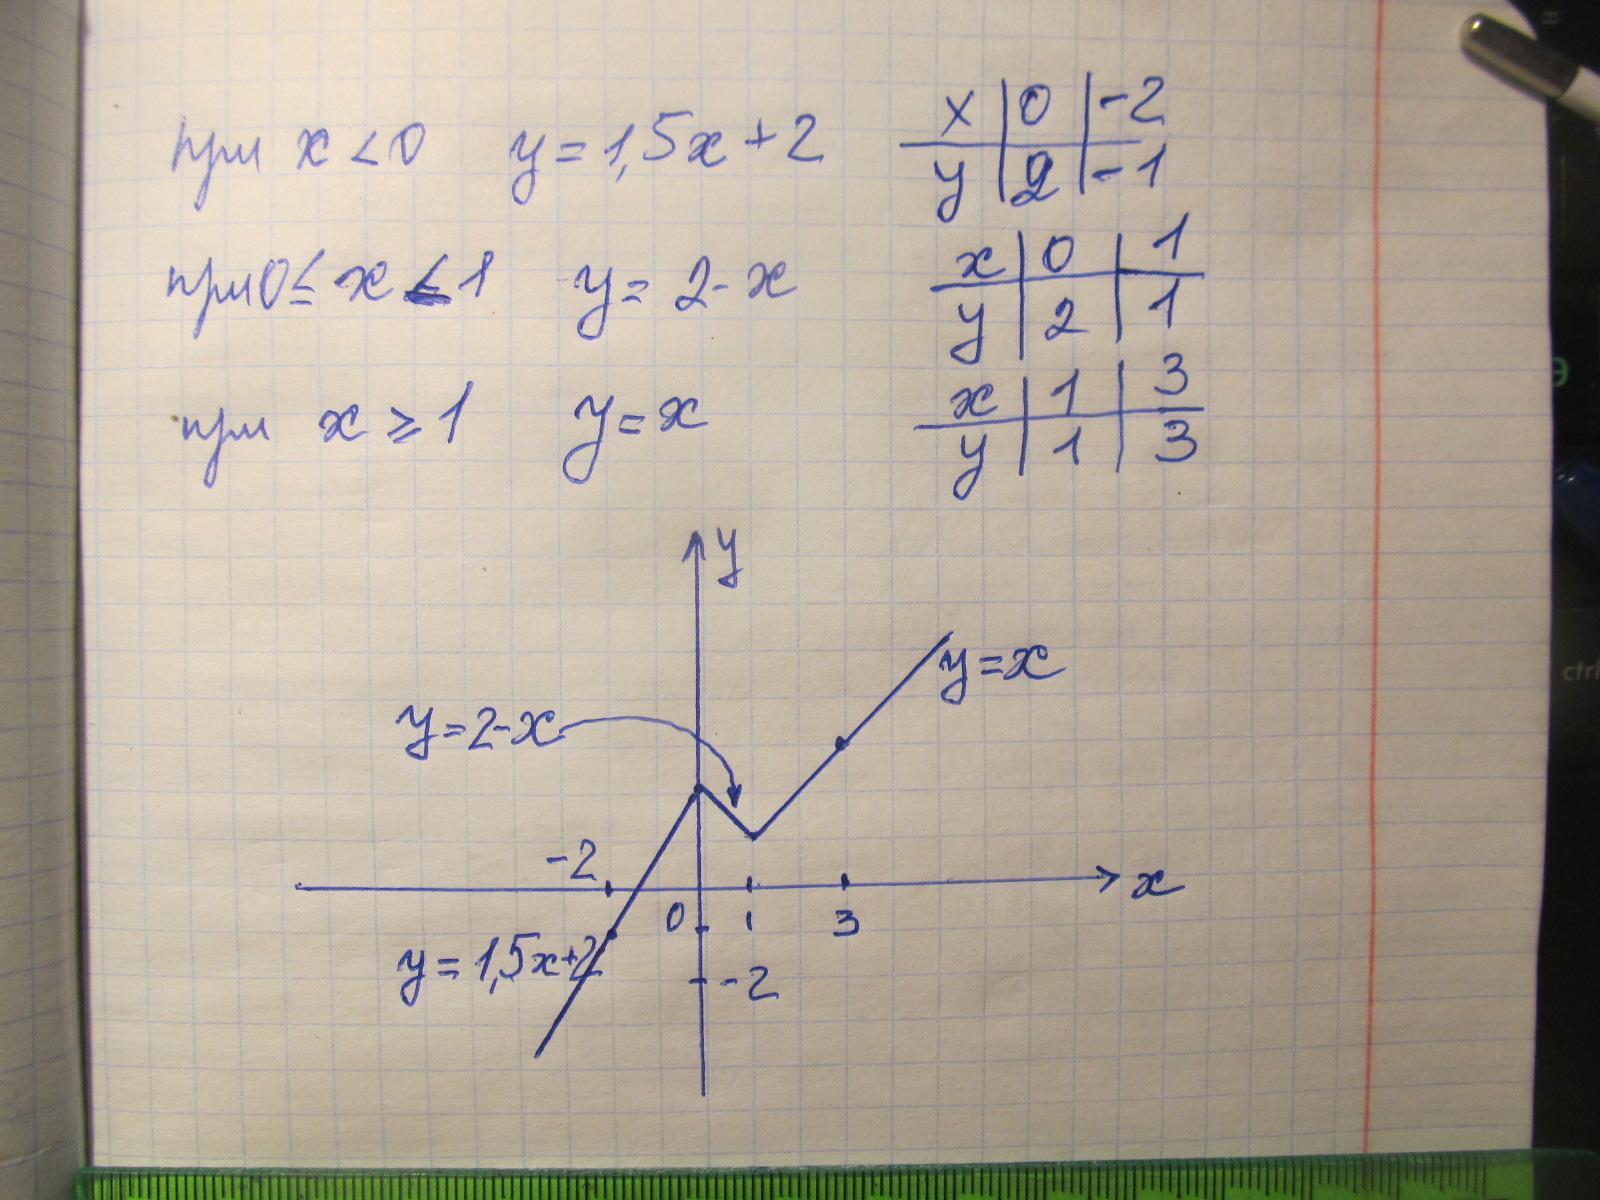 при x < 0 y = 1,5x + 2
x 0 -2
y 2 -1
при 0 ≤ x < 1 y = 2 - x
x 0 1
y 2 1
при x ≥ 1 y = x
x 1 3
y 1 3
y
y = x
y = 2 - x
-2
x
0 1 3
y = 1,5x+2
-2
ctrl